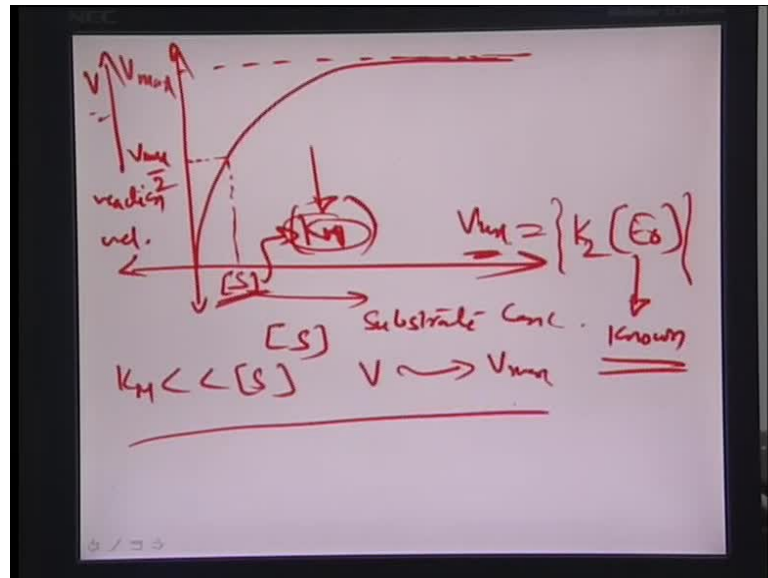 NEC
V Vmax
Vmax/2
reaction
vel.
(KM)
Vmax = {K2 (E0)}
[S]
Substrate Conc.
Known
[S]
KM << [S]
V → Vmax